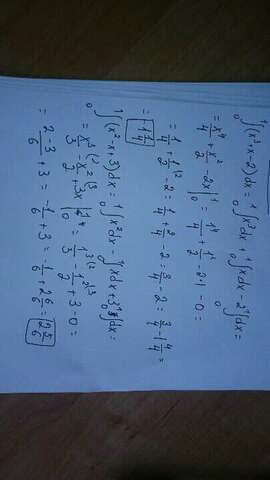 ₀¹∫(x³+x-2)dx = ₀¹∫x³dx + ₀¹∫xdx - 2₀¹∫dx =
= x⁴/4 + x²/2 - 2x |₀¹ = 1⁴/4 + 1²/2 - 2·1 - 0 =
= 1/4 + 1/2 - 2 = 1/4 + 2/4 - 2 = 3/4 - 2 = 3/4 - 1 4/4 =
= -1 1/4
₀¹∫(x²-x+3)dx = ₀¹∫x²dx - ₀¹∫xdx + 3₀¹∫dx =
= x³/3 - x²/2 + 3x |₀¹ = 1³/3 - 1²/2 + 3 - 0 =
= 2-3/6 + 3 = -1/6 + 3 = -1/6 + 2 6/6 =
= 2 5/6